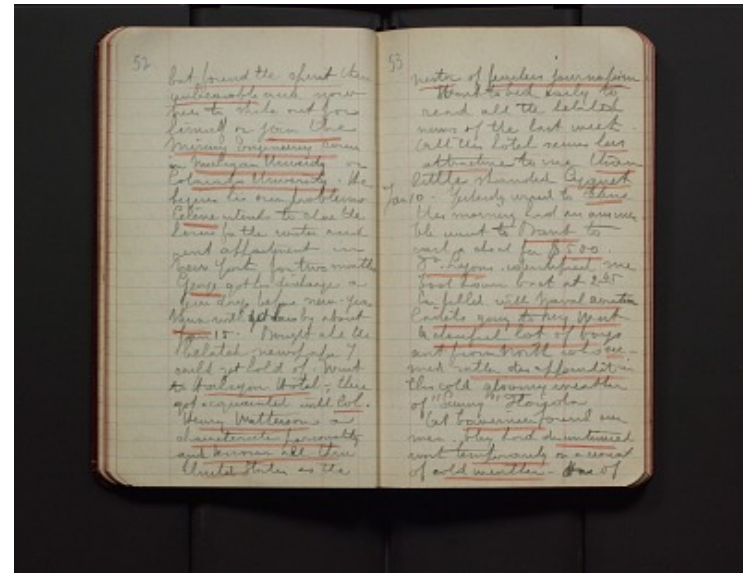 52
but found the spirit there
unbearable and now
free to strike out for
himself or join the
Mining Engineering Course
in Michigan University or
Colorado University. He
figures his own problems
Celine intends to close the
house for the winter and
rent appartment in
New York for two months
George got his discharge a
few days before new-year
Nina will by about
Jan 15. Bought all the
belated newspapers I
could get hold of. Went
to Halcyon Hotel, there
got acquainted with Col.
Henry Watterson a
characteristic personality
and known all thru
United States as the
53
nestor of fearless journalism
Went to bed early to
read all the belated
news of the last week.
All this hotel seems less
attractive to me than
little stranded Cygnet
Jan 10. Yesterday wired to
this morning and an answer
went to Bank to
cash a check for $500.
Lyons identified me
Took down boat at 2.45
Car filled with Naval aviation
Cadets going to Key West
A cheerful lot of boys
and from North who
seemed rather disappointed in
this cold gloomy weather
of "Sunny" Florida
At found our
men. They had
temporarily on account
of cold weather - One of